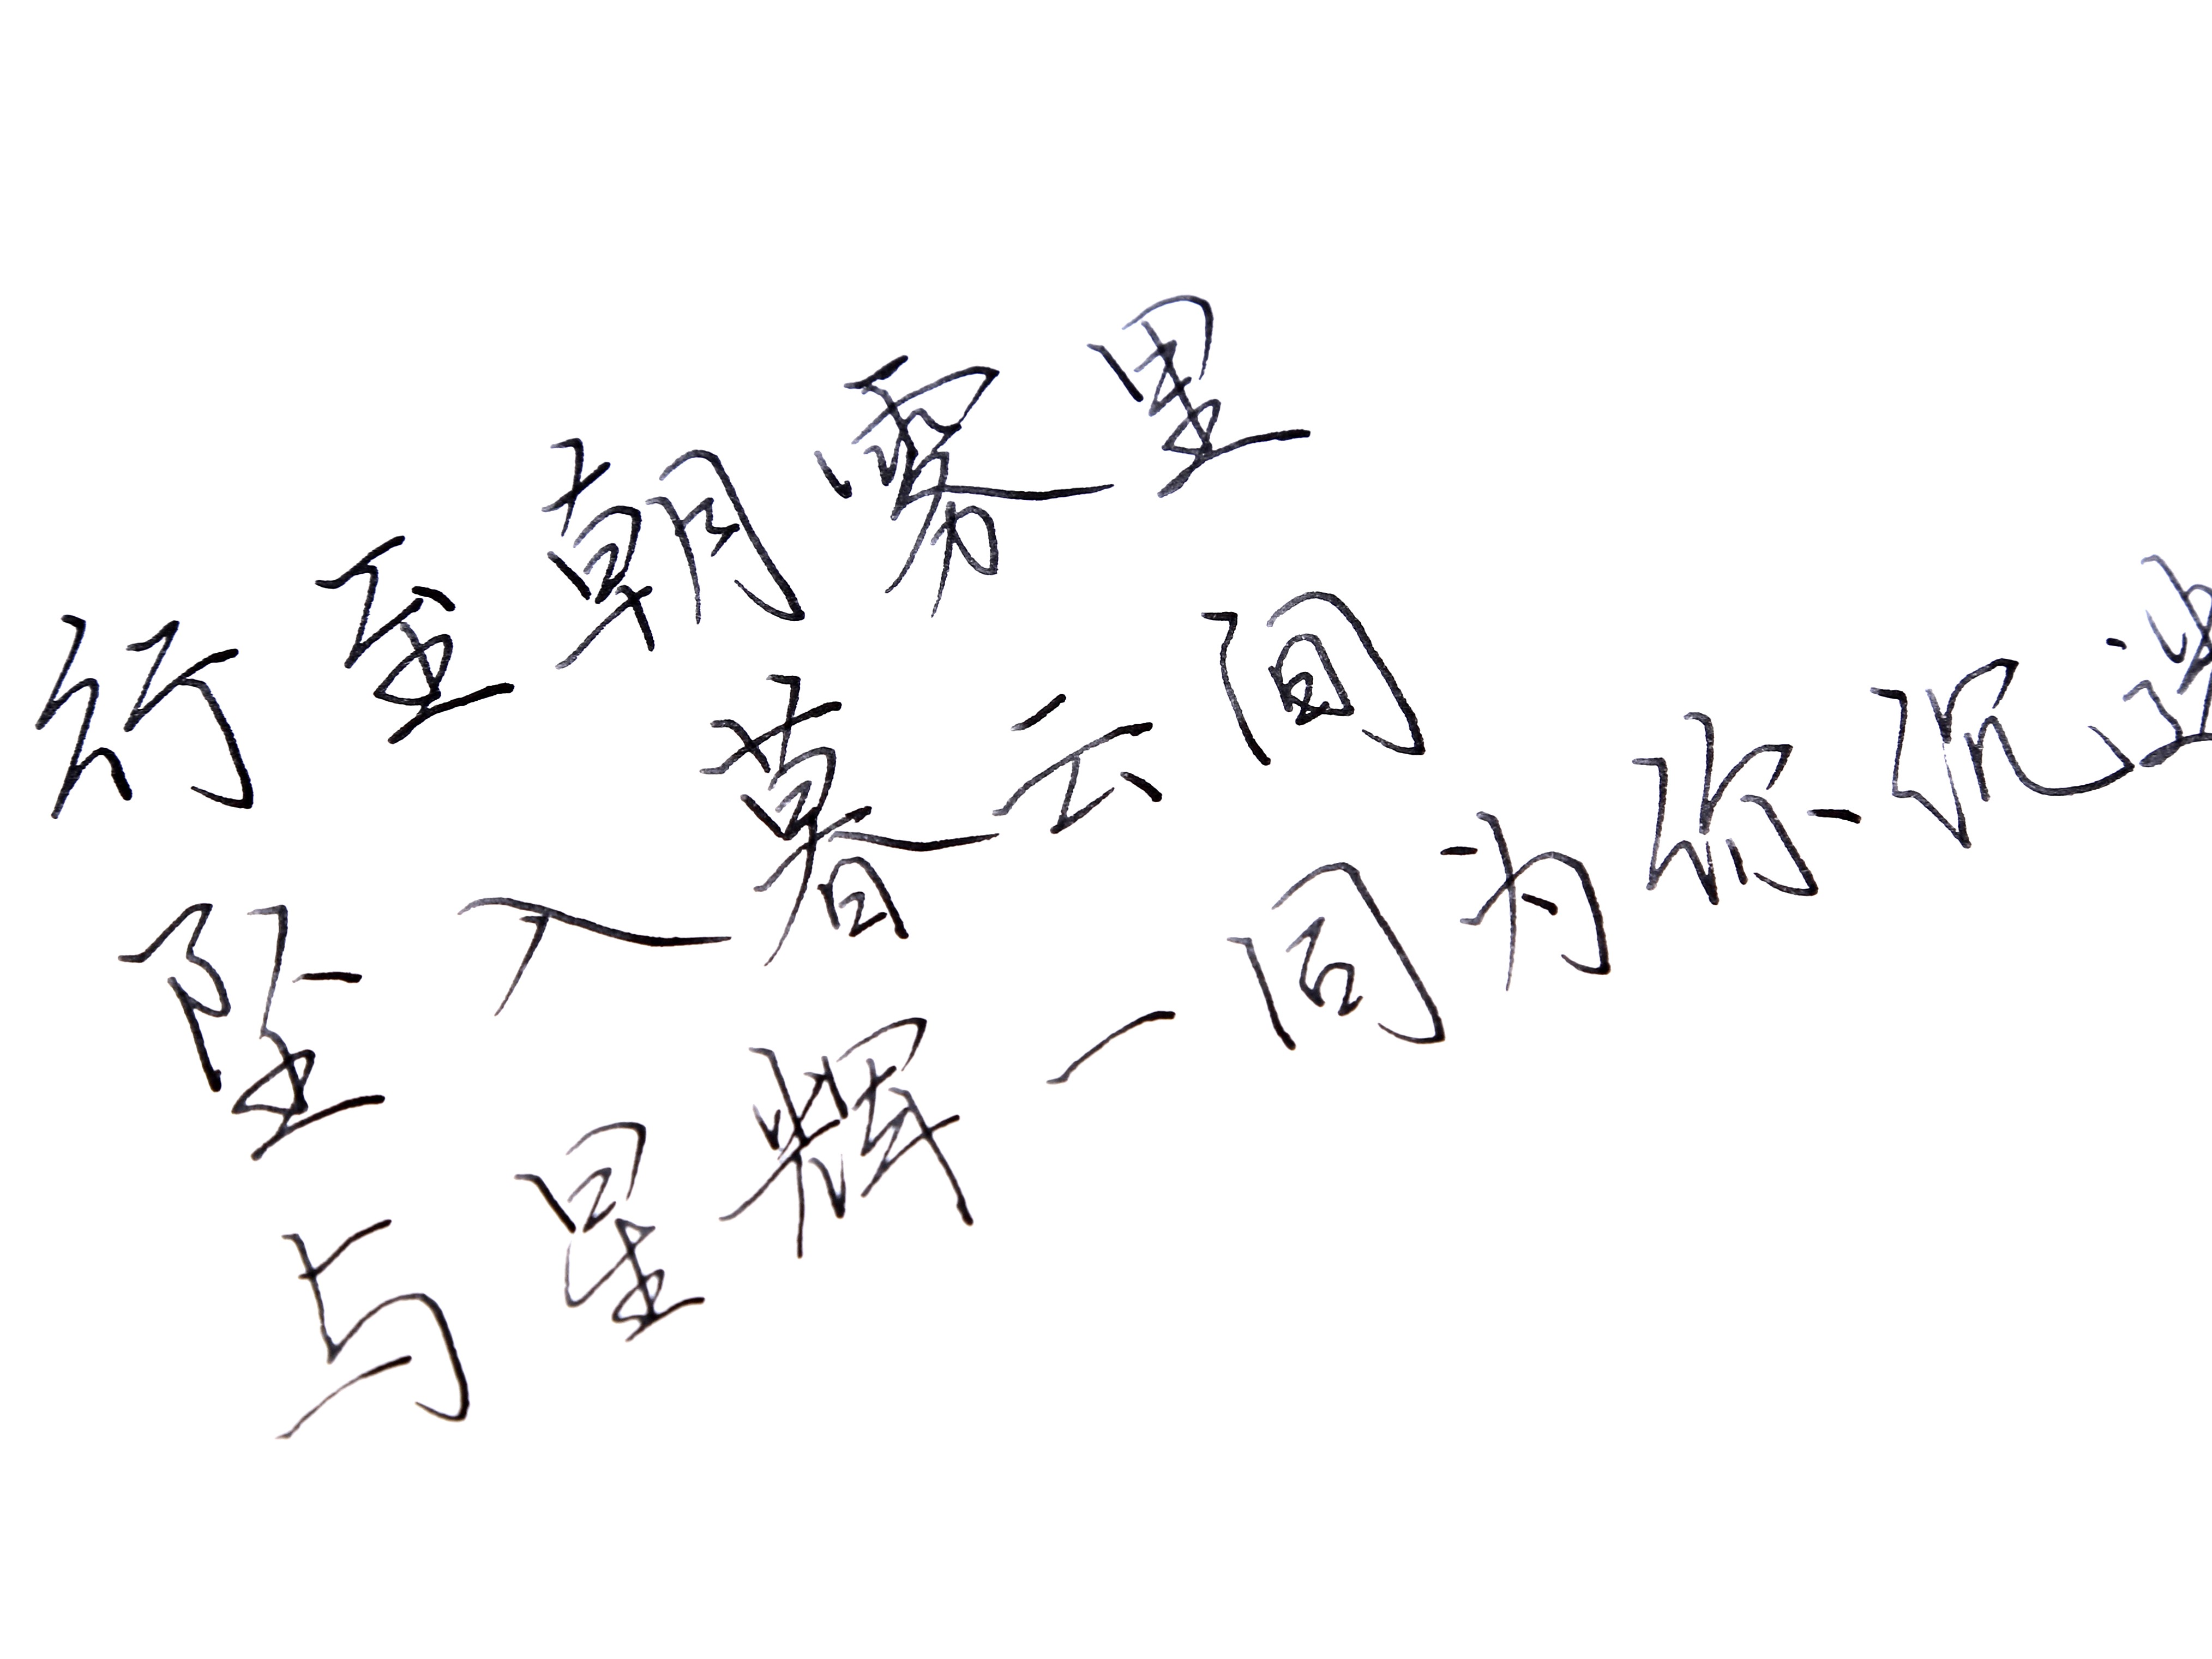 行至朝雾里
坠入暮云间
与星辉一同为你沉